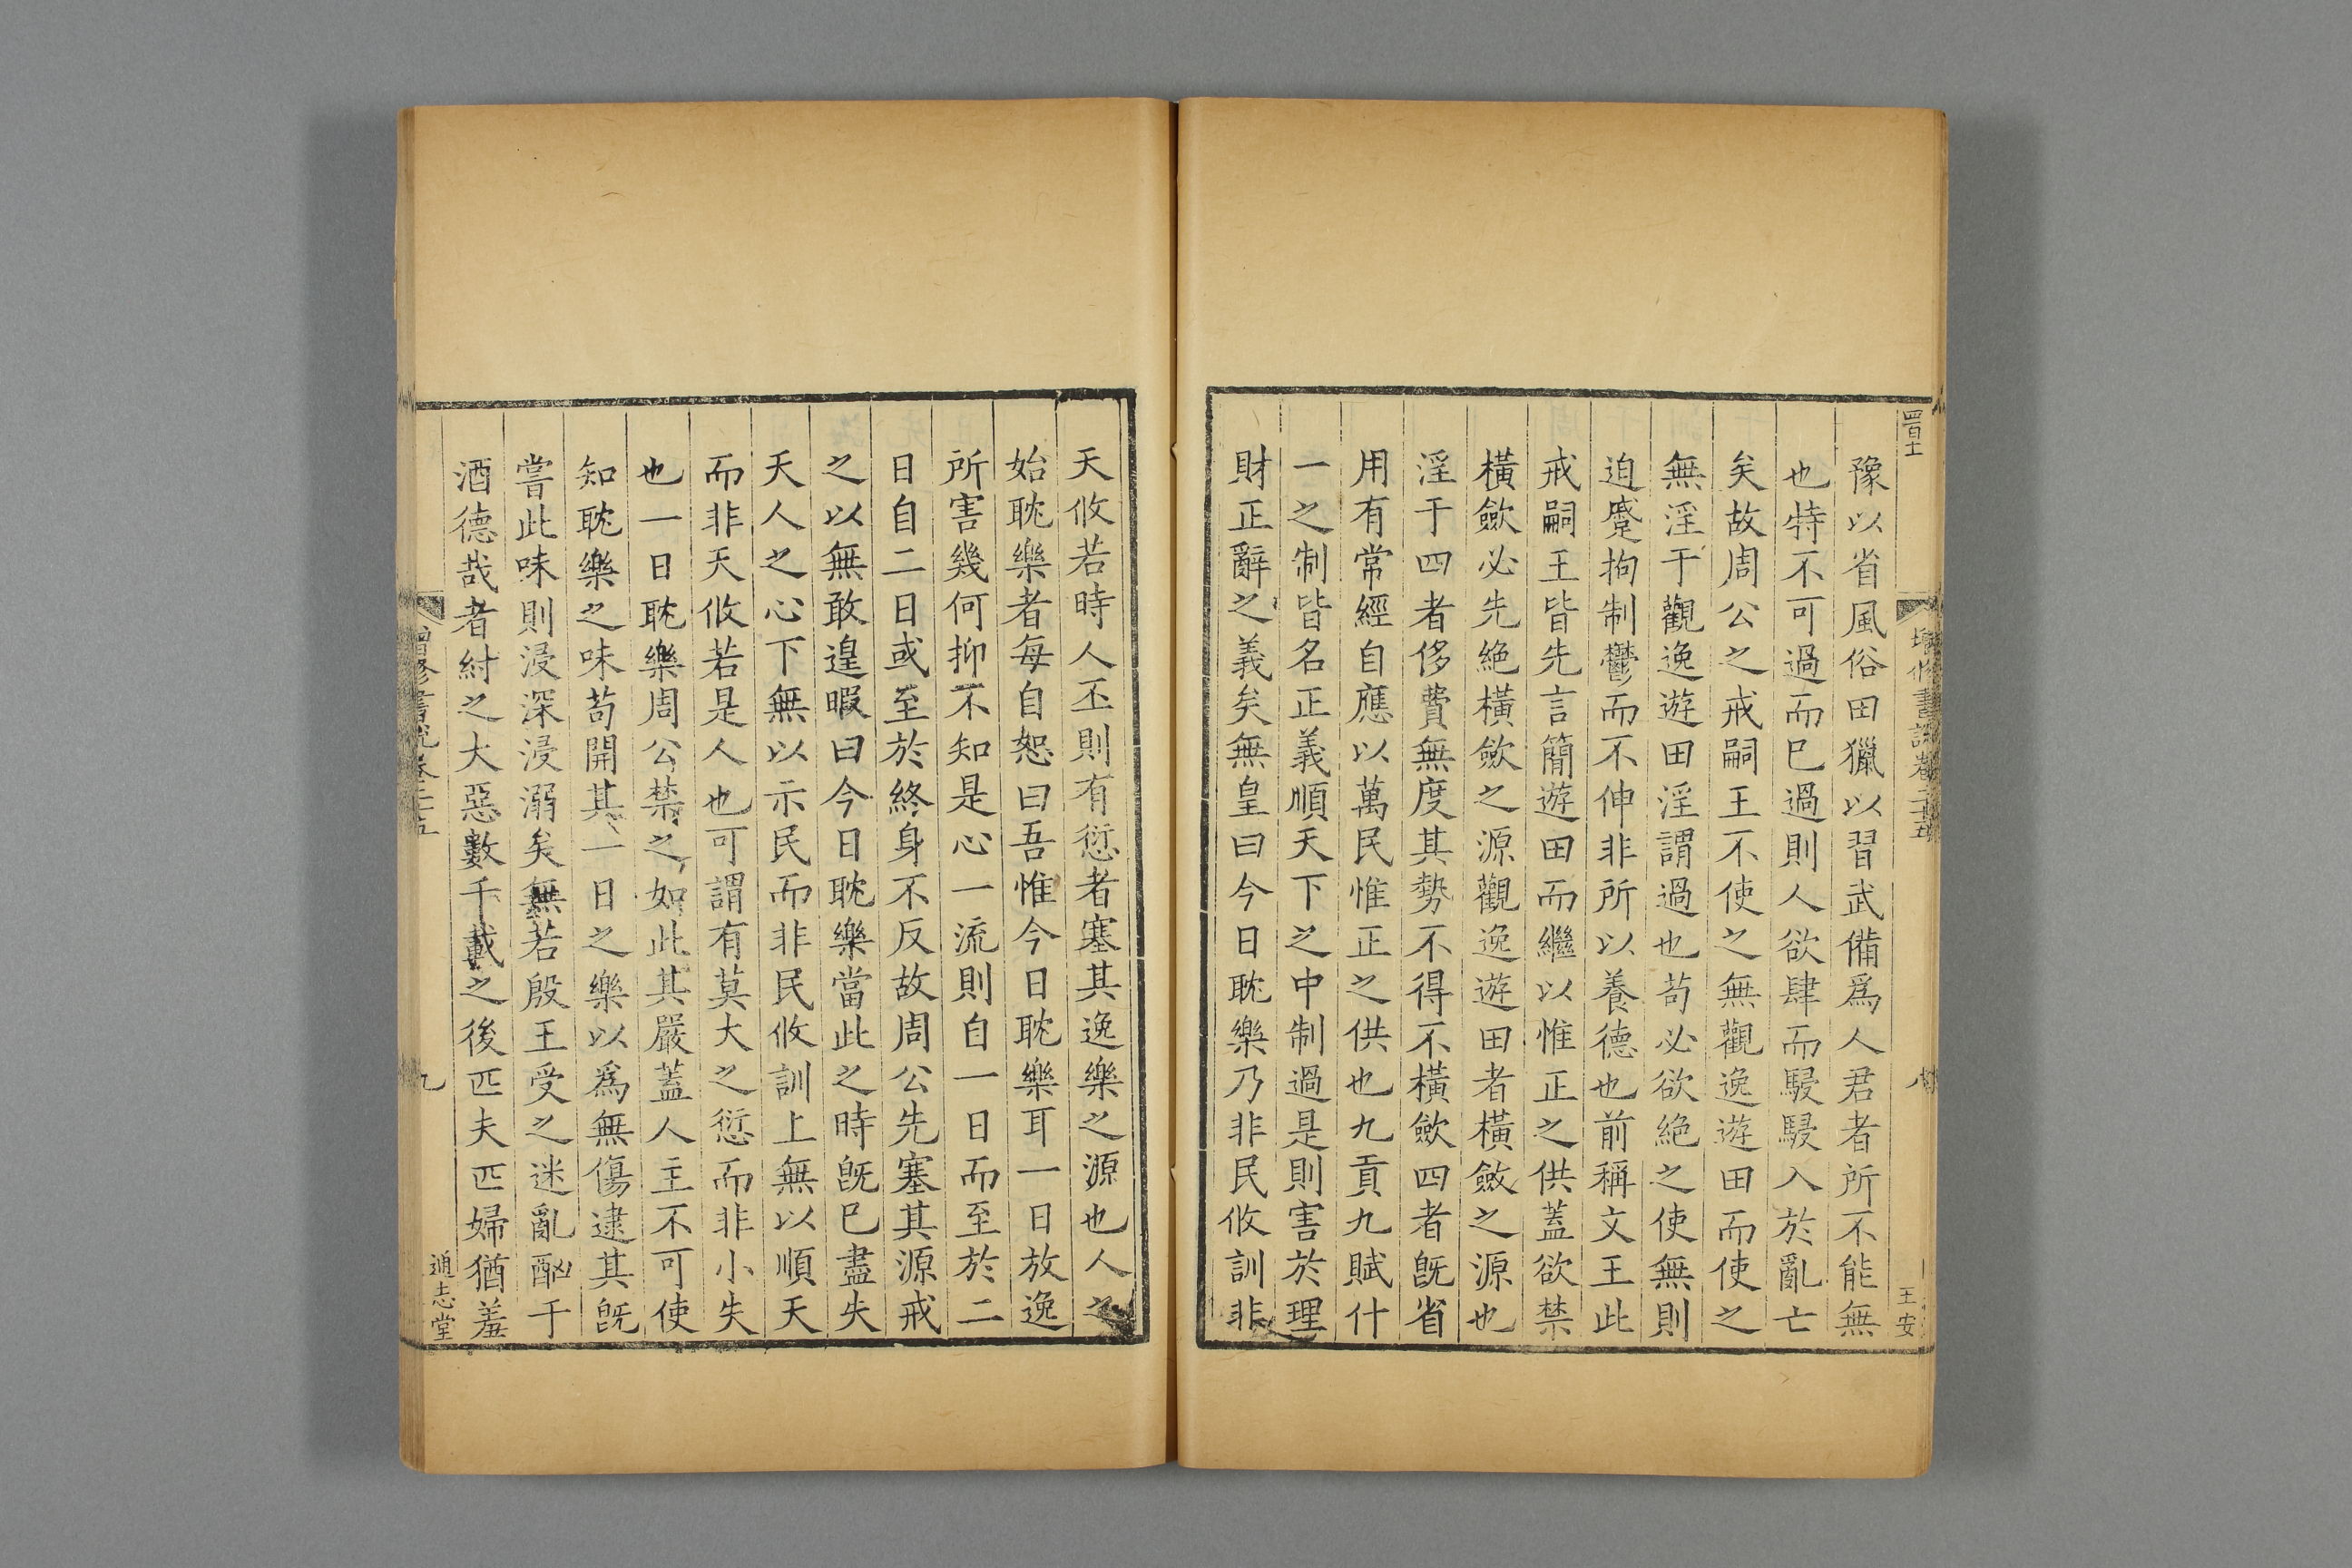 豫以省風俗田獵以習武備爲人君者所不能無
也特不可過而已過則人欲肆而駸駸入於亂亡
矣故周公之戒嗣王不使之無觀逸遊田而使之
無淫于觀逸遊田淫謂過也苟必欲絶之使無則
迫蹙拘制鬱而不伸非所以養德也前稱文王此
戒嗣王皆先言簡遊田而繼以惟正之供蓋欲禁
橫歛必先絶橫歛之源觀逸遊田者橫斂之源也
淫于四者侈費無度其勢不得不橫歛四者旣省
用有常經自應以萬民惟正之供也九貢九賦什
一之制皆名正義順天下之中制過是則害於理
財正辭之義矣無皇曰今日耽樂乃非民攸訓非
天攸若時人丕則有愆者塞其逸樂之源也人之
始耽樂者每自恕曰吾惟今日耽樂耳一日放逸
所害幾何抑不知是心一流則自一日而至於二
日自二日或至於終身不反故周公先塞其源戒
之以無敢遑暇曰今日耽樂當此之時旣已盡失
天人之心下無以示民而非民攸訓上無以順天
而非天攸若是人也可謂有莫大之愆而非小失
也一日耽樂周公禁之如此其嚴蓋人主不可使
知耽樂之味苟開其一日之樂以爲無傷逮其旣
嘗此味則浸深浸溺矣無若殷王受之迷亂酗于
酒德哉者紂之大惡數千載之後匹夫匹婦猶羞
增修書說卷二十五
八
王安
增修書說卷二十五
九
通志堂